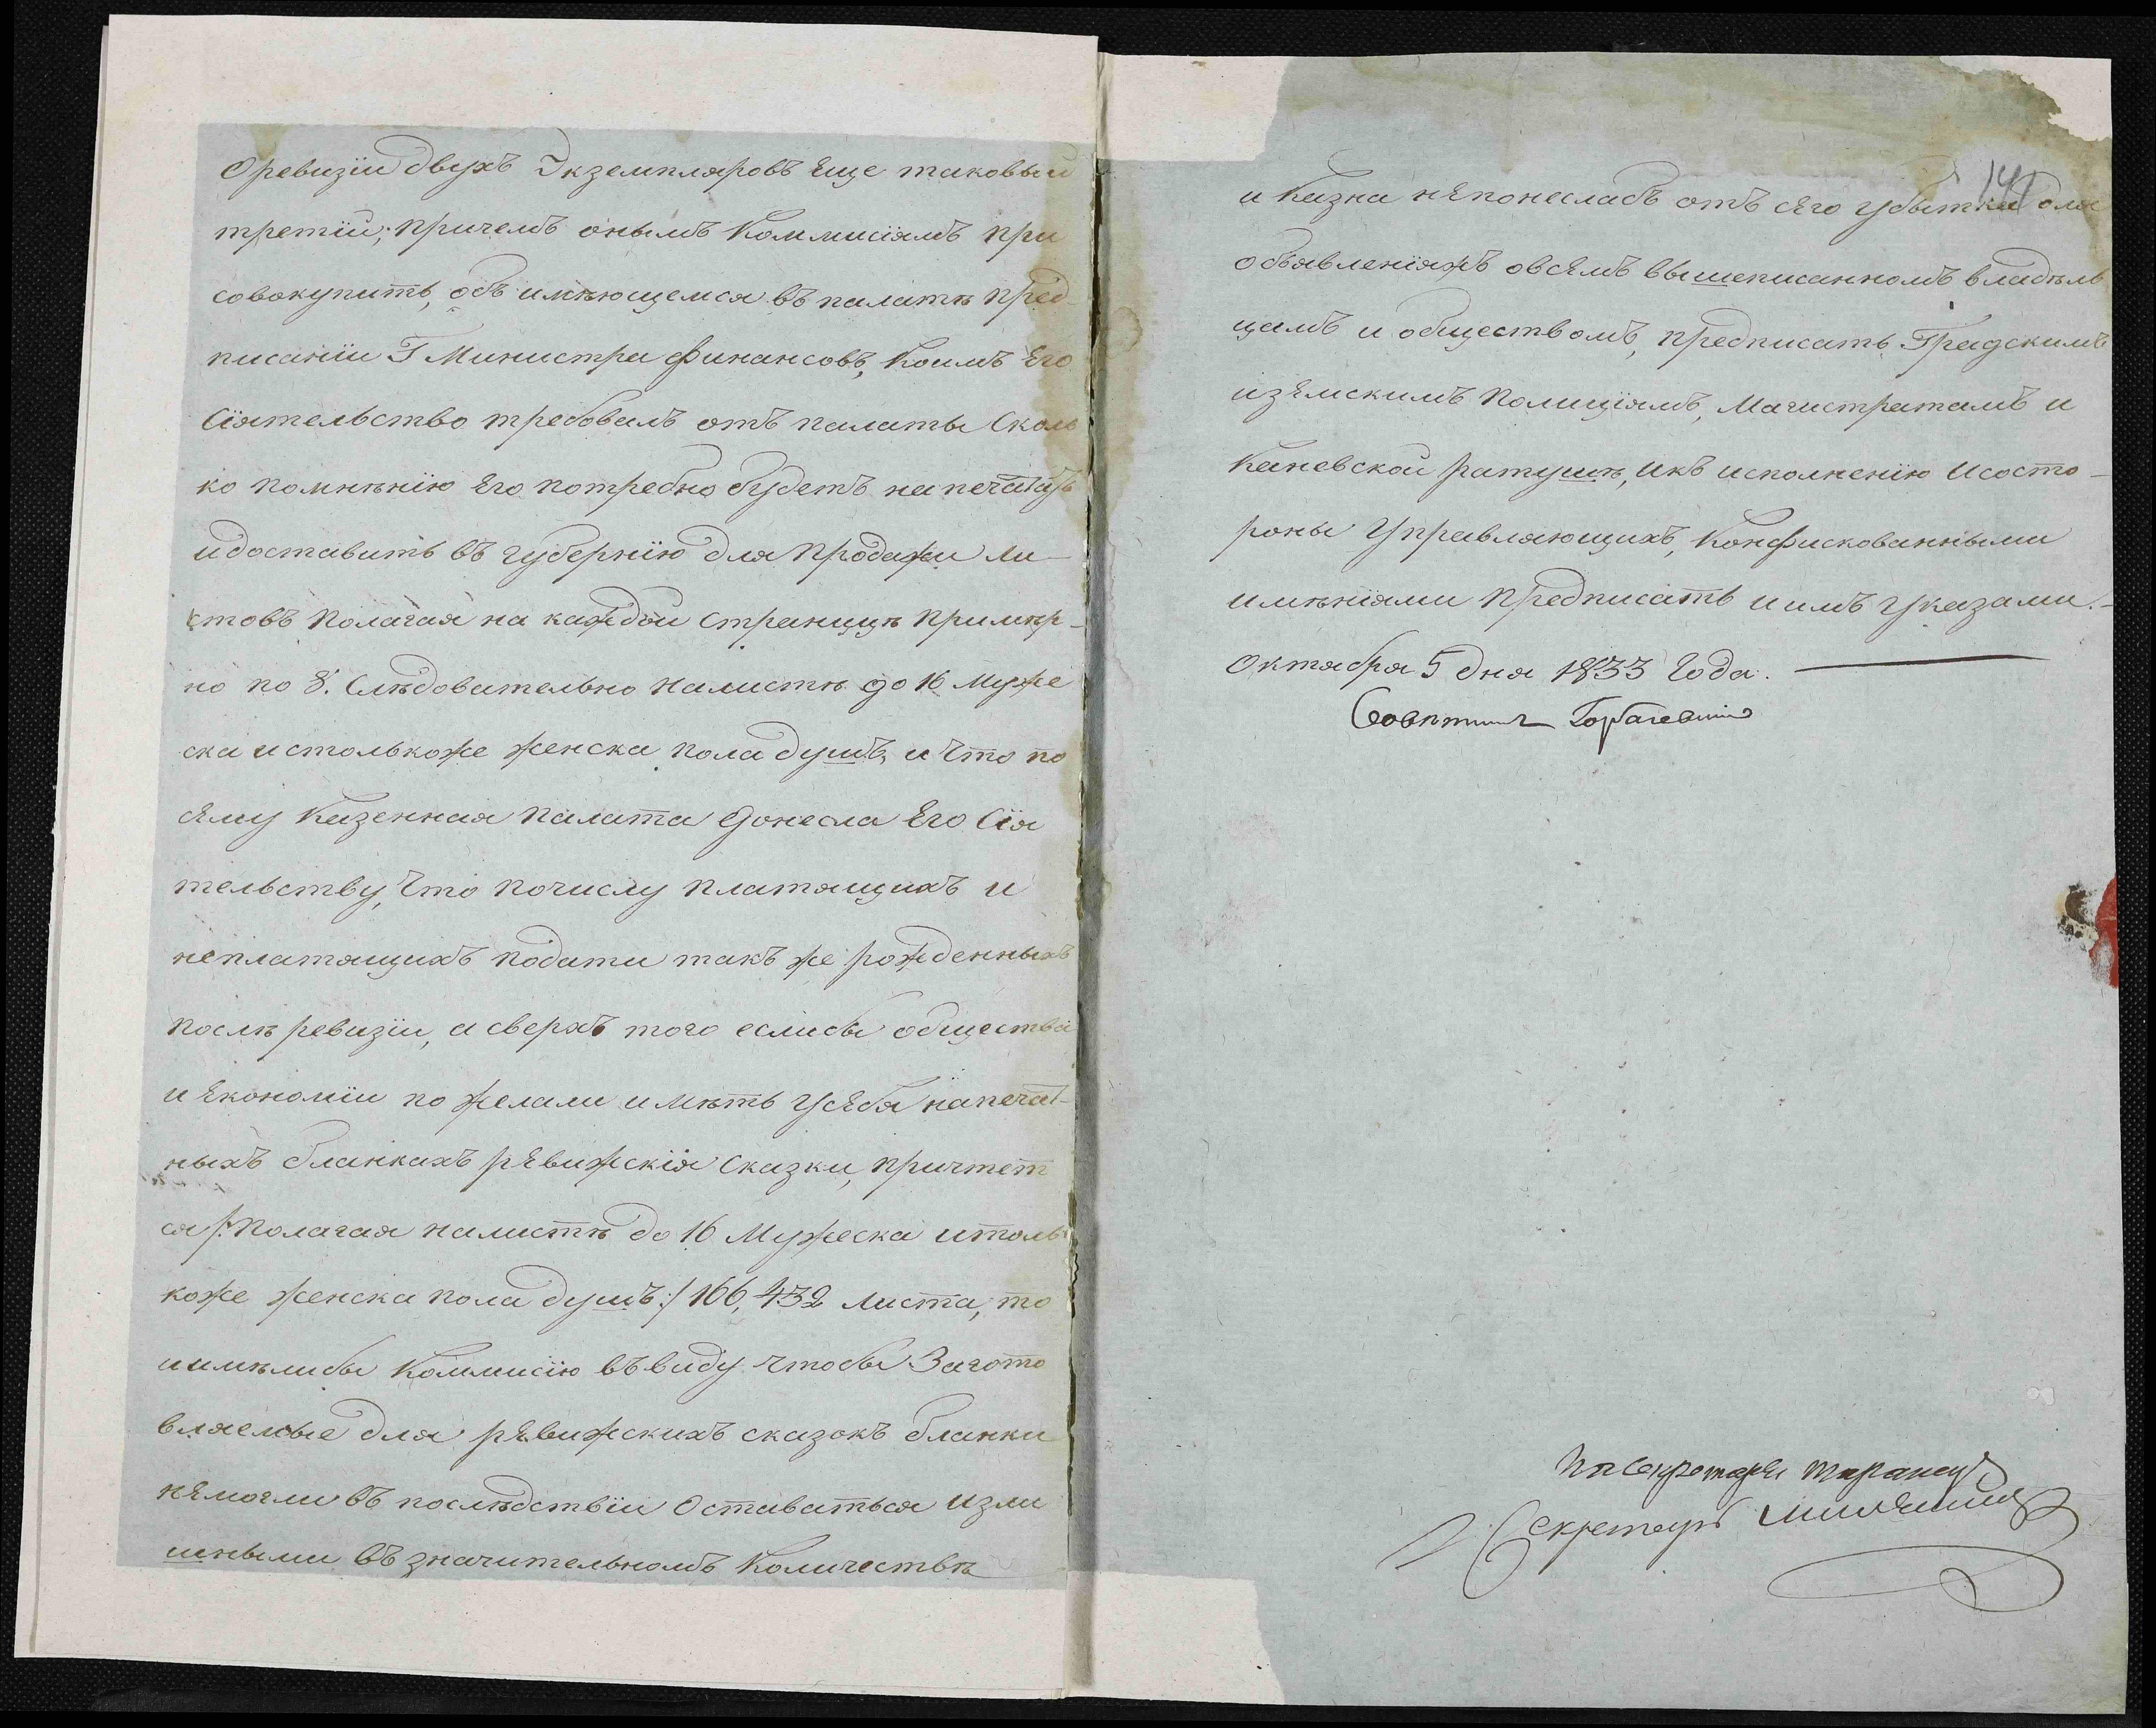 о ревизіи двухъ Экземпляровъ еще таковый
третій; причемъ онымъ Коммисіямъ при
совокупить, объ имѣющемся въ палатѣ пред-
писаніи Г Министра Финансовъ, коимъ Его
Сіятельство требовалъ отъ палаты сколь
ко помнѣнію его потребно будетъ напечатать
идоставить въ губернію для продажи ли-
стовъ полагая на каждой страницѣ примѣр-
но по 8. слѣдовательно налистѣ до 16 муже
ска истолькоже женска пола душъ, и что по
сему Казенная палата донесла Его Сія
тельству, что почислу платящихъ и
неплатящихъ подати такъ же рожденныхъ
послѣ ревизіи, а сверхъ того еслибы общества
и економіи пожелали имѣть усебя напечат-
ныхъ бланкахъ ревижскія сказки, причтет
ся /: полагая налистѣ до 16 мужеска итоль
коже женска пола душъ :/ 166,432 листа, то
иимѣлибы Коммисію въвиду чтобы загото
вляемые для ревижскихъ сказокъ бланки
немогли въ послѣдствіи оставаться изли
шными въ значительномъ количествѣ
141
и казна непонеслабъ отъ сего убытка для
объявленіяхъ овсемъ вышеписанномъ владѣль
цамъ и обществомъ, предписать Градскимъ
иземскимъ полиціямъ, Магистратамъ и
Каневской ратушѣ, икъ исполненію исосто-
роны управляющихъ, конфискованными
имѣніями предписать иимъ указами.-
Октября 5 дня 1833 года.
Совѣтникъ Горбачевскій
Секретарь